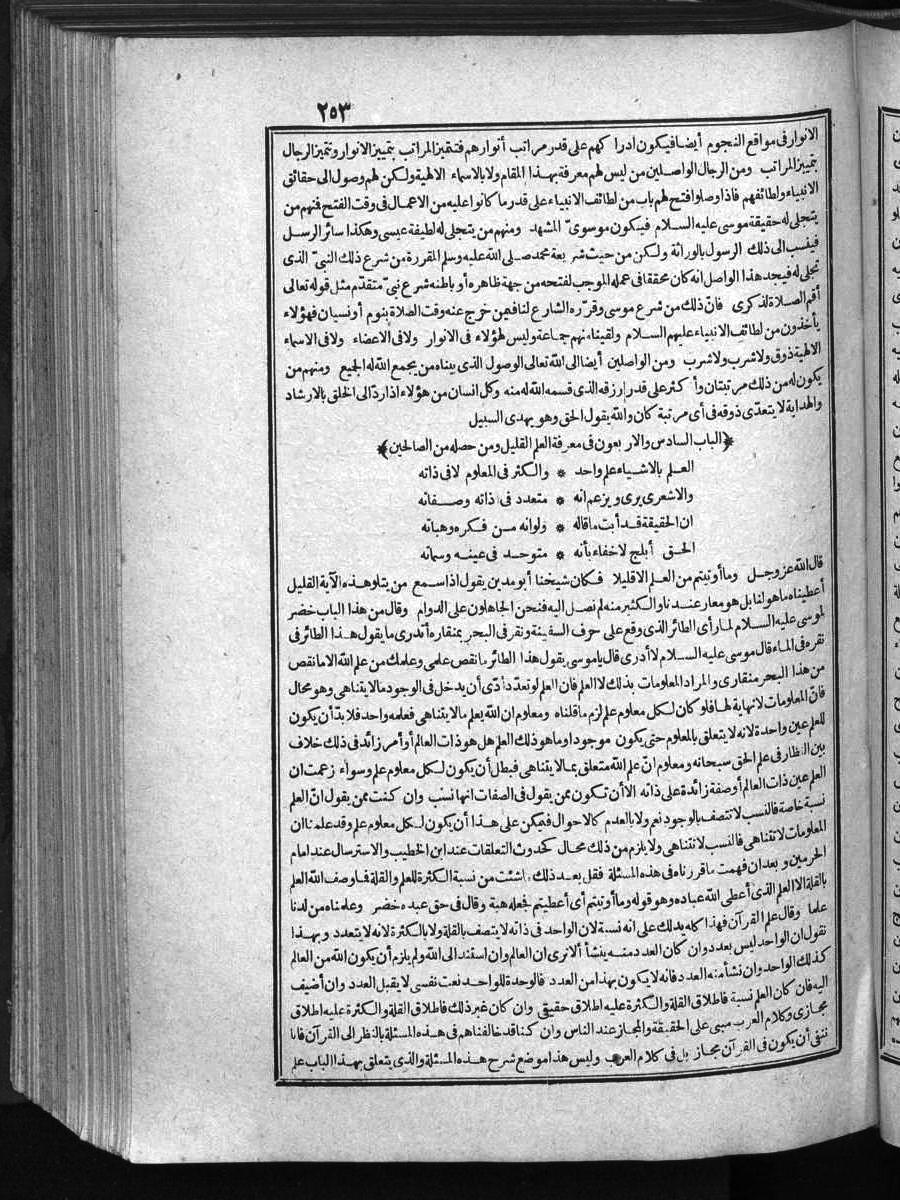 ٢٥٣
الانوار فى مواقع النجوم أيضا فيكون ادراكهم على قدر مراتب أنوارهم فتتميز المراتب بتمييز الانوار وتتميز الرجال
بتمييز المراتب ومن الرجال الواصلين من ليس لهم معرفة بهذا المقام ولا بالاسماء الالهية ولكن لهم وصول الى حقائق
الانبياء ولطائفهم فاذا وصلوا فتح لهم باب من لطائف الانبياء على قدر ما كانوا عليه من الاعمال فى وقت الفتح فمنهم من
يتجلى له حقيقة موسى عليه السلام فيكون موسوىّ المشهد ومنهم من يتجلى له لطيفة عيسى وهكذا سائر الرسل
فينسب الى ذلك الرسول بالوراثة ولكن من حيث شريعة محمد صلى الله عليه وسلم المقررة من شرع ذلك النبىّ الذى
تجلى له فيجد هذا الواصل انه كان محققا فى عمله الموجب لفتحه من جهة ظاهره أو باطنه شرع نبىّ متقدّم مثل قوله تعالى
أقم الصلاة لذكرى فانّ ذلك من شرع موسى وقرّره الشارع لنا فيمن خرج عنه وقت الصلاة بنوم أو نسيان فهؤلاء
يأخذون من لطائف الانبياء عليهم السلام ولقينا منهم جماعة وليس لهؤلاء فى الانوار ولا فى الاعضاء ولا فى الاسماء
الالهية ذوق ولا شرب ولا شرب ومن الواصلين أيضا الى الله تعالى الوصول الذى بيناه من يجمع الله له الجميع ومنهم من
يكون له من ذلك مرتبتان وأكثر على قدر رزقه الذى قسمه الله له منه وكل انسان من هؤلاء اذا ردّ الى الخلق بالارشاد
والهداية لا يتعدّى ذوقه فى أى مرتبة كان والله يقول الحق وهو يهدى السبيل
﴿الباب السادس والاربعون فى معرفة العلم القليل ومن حصله من الصالحين﴾
العلم بالاشياء علم واحد * والكثر فى المعلوم لا فى ذاته
والاشعرى يرى ويزعم انه * متعدد فى ذاته وصفاته
ان الحقيقة قد أبت ما قاله * ولو انه من فكره وهباته
الحق أبلج لا خفاء بأنه * متوحد فى عينه وسماته
قال الله عز وجل وما أوتيتم من العلم الا قليلا فكان شيخنا أبو مدين يقول اذا سمع من يتلو هذه الآية القليل
أعطيناه ما هو لنا بل هو معار عندنا والكثير منه لم نصل اليه فنحن الجاهلون على الدوام وقال من هذا الباب خضر
لموسى عليه السلام لما رأى الطائر الذى وقع على حرف السفينة ونقر فى البحر بمنقاره أتدرى ما يقول هذا الطائر فى
نقره فى الماء قال موسى عليه السلام لا أدرى قال يا موسى يقول هذا الطائر ما نقص علمى وعلمك من علم الله الا ما نقص
من هذا البحر منقارى والمراد المعلومات بذلك لا العلم فان العلم لو تعدّد أدّى أن يدخل فى الوجود ما لا يتناهى وهو محال
فانّ المعلومات لا نهاية لها فلو كان لكل معلوم علم لزم ما قلناه ومعلوم ان الله يعلم ما لا يتناهى فعلمه واحد فلا بدّ أن يكون
للعلم عين واحدة لانه لا يتعلق بالمعلوم حتى يكون موجودا وما هو ذلك العلم هل هو ذات العالم أو أمر زائد فى ذلك خلاف
بين النظار فى علم الحق سبحانه ومعلوم انّ علم الله متعلق بما لا يتناهى فبطل أن يكون لكل معلوم علم وسواء زعمت ان
العلم عين ذات العالم أو صفة زائدة على ذاته الا أن تكون ممن يقول فى الصفات انها نسب وان كنت ممن يقول انّ العلم
نسبة خاصة فالنسب لا تتصف بالوجود نعم ولا بالعدم كالاحوال فيمكن على هذا أن يكون لكل معلوم علم وقد علمنا ان
المعلومات لا تتناهى فالنسب لا تتناهى ولا يلزم من ذلك محال كحدوث التعلقات عند ابن الخطيب والاسترسال عند امام
الحرمين وبعد ان فهمت ما قررناه فى هذه المسئلة فقل بعد ذلك ما شئت من نسبة الكثرة للعلم والقلة فما وصف الله العلم
بالقلة الا العلم الذى أعطى الله عباده وهو قوله وما أوتيتم أى أعطيتم فجعله هبة وقال فى حق عبده خضر وعلمناه من لدنا
علما وقال علم القرآن فهذا كله يدلك على انه نسبة لان الواحد فى ذاته لا يتصف بالقلة ولا بالكثرة لانه لا يتعدد وبهذا
نقول ان الواحد ليس بعدد وان كان العدد منه ينشأ ألا ترى ان العالم وان استند الى الله ولم يلزم أن يكون الله من العالم
كذلك الواحد وان نشأ منه العدد فانه لا يكون بهذا من العدد فالوحدة للواحد نعت نفسى لا يقبل العدد وان أضيف
اليه فان كان العلم نسبة فاطلاق القلة والكثرة عليه اطلاق حقيقى وان كان غير ذلك فاطلاق القلة والكثرة عليه اطلاق
مجازى وكلام العرب مبنى على الحقيقة والمجاز عند الناس وان كنا قد خالفناهم فى هذه المسئلة بالنظر الى القرآن فانا
ننفى أن يكون فى القرآن مجاز بل فى كلام العرب وليس هذا موضع شرح هذه المسئلة والذى يتعلق بهذا الباب علم